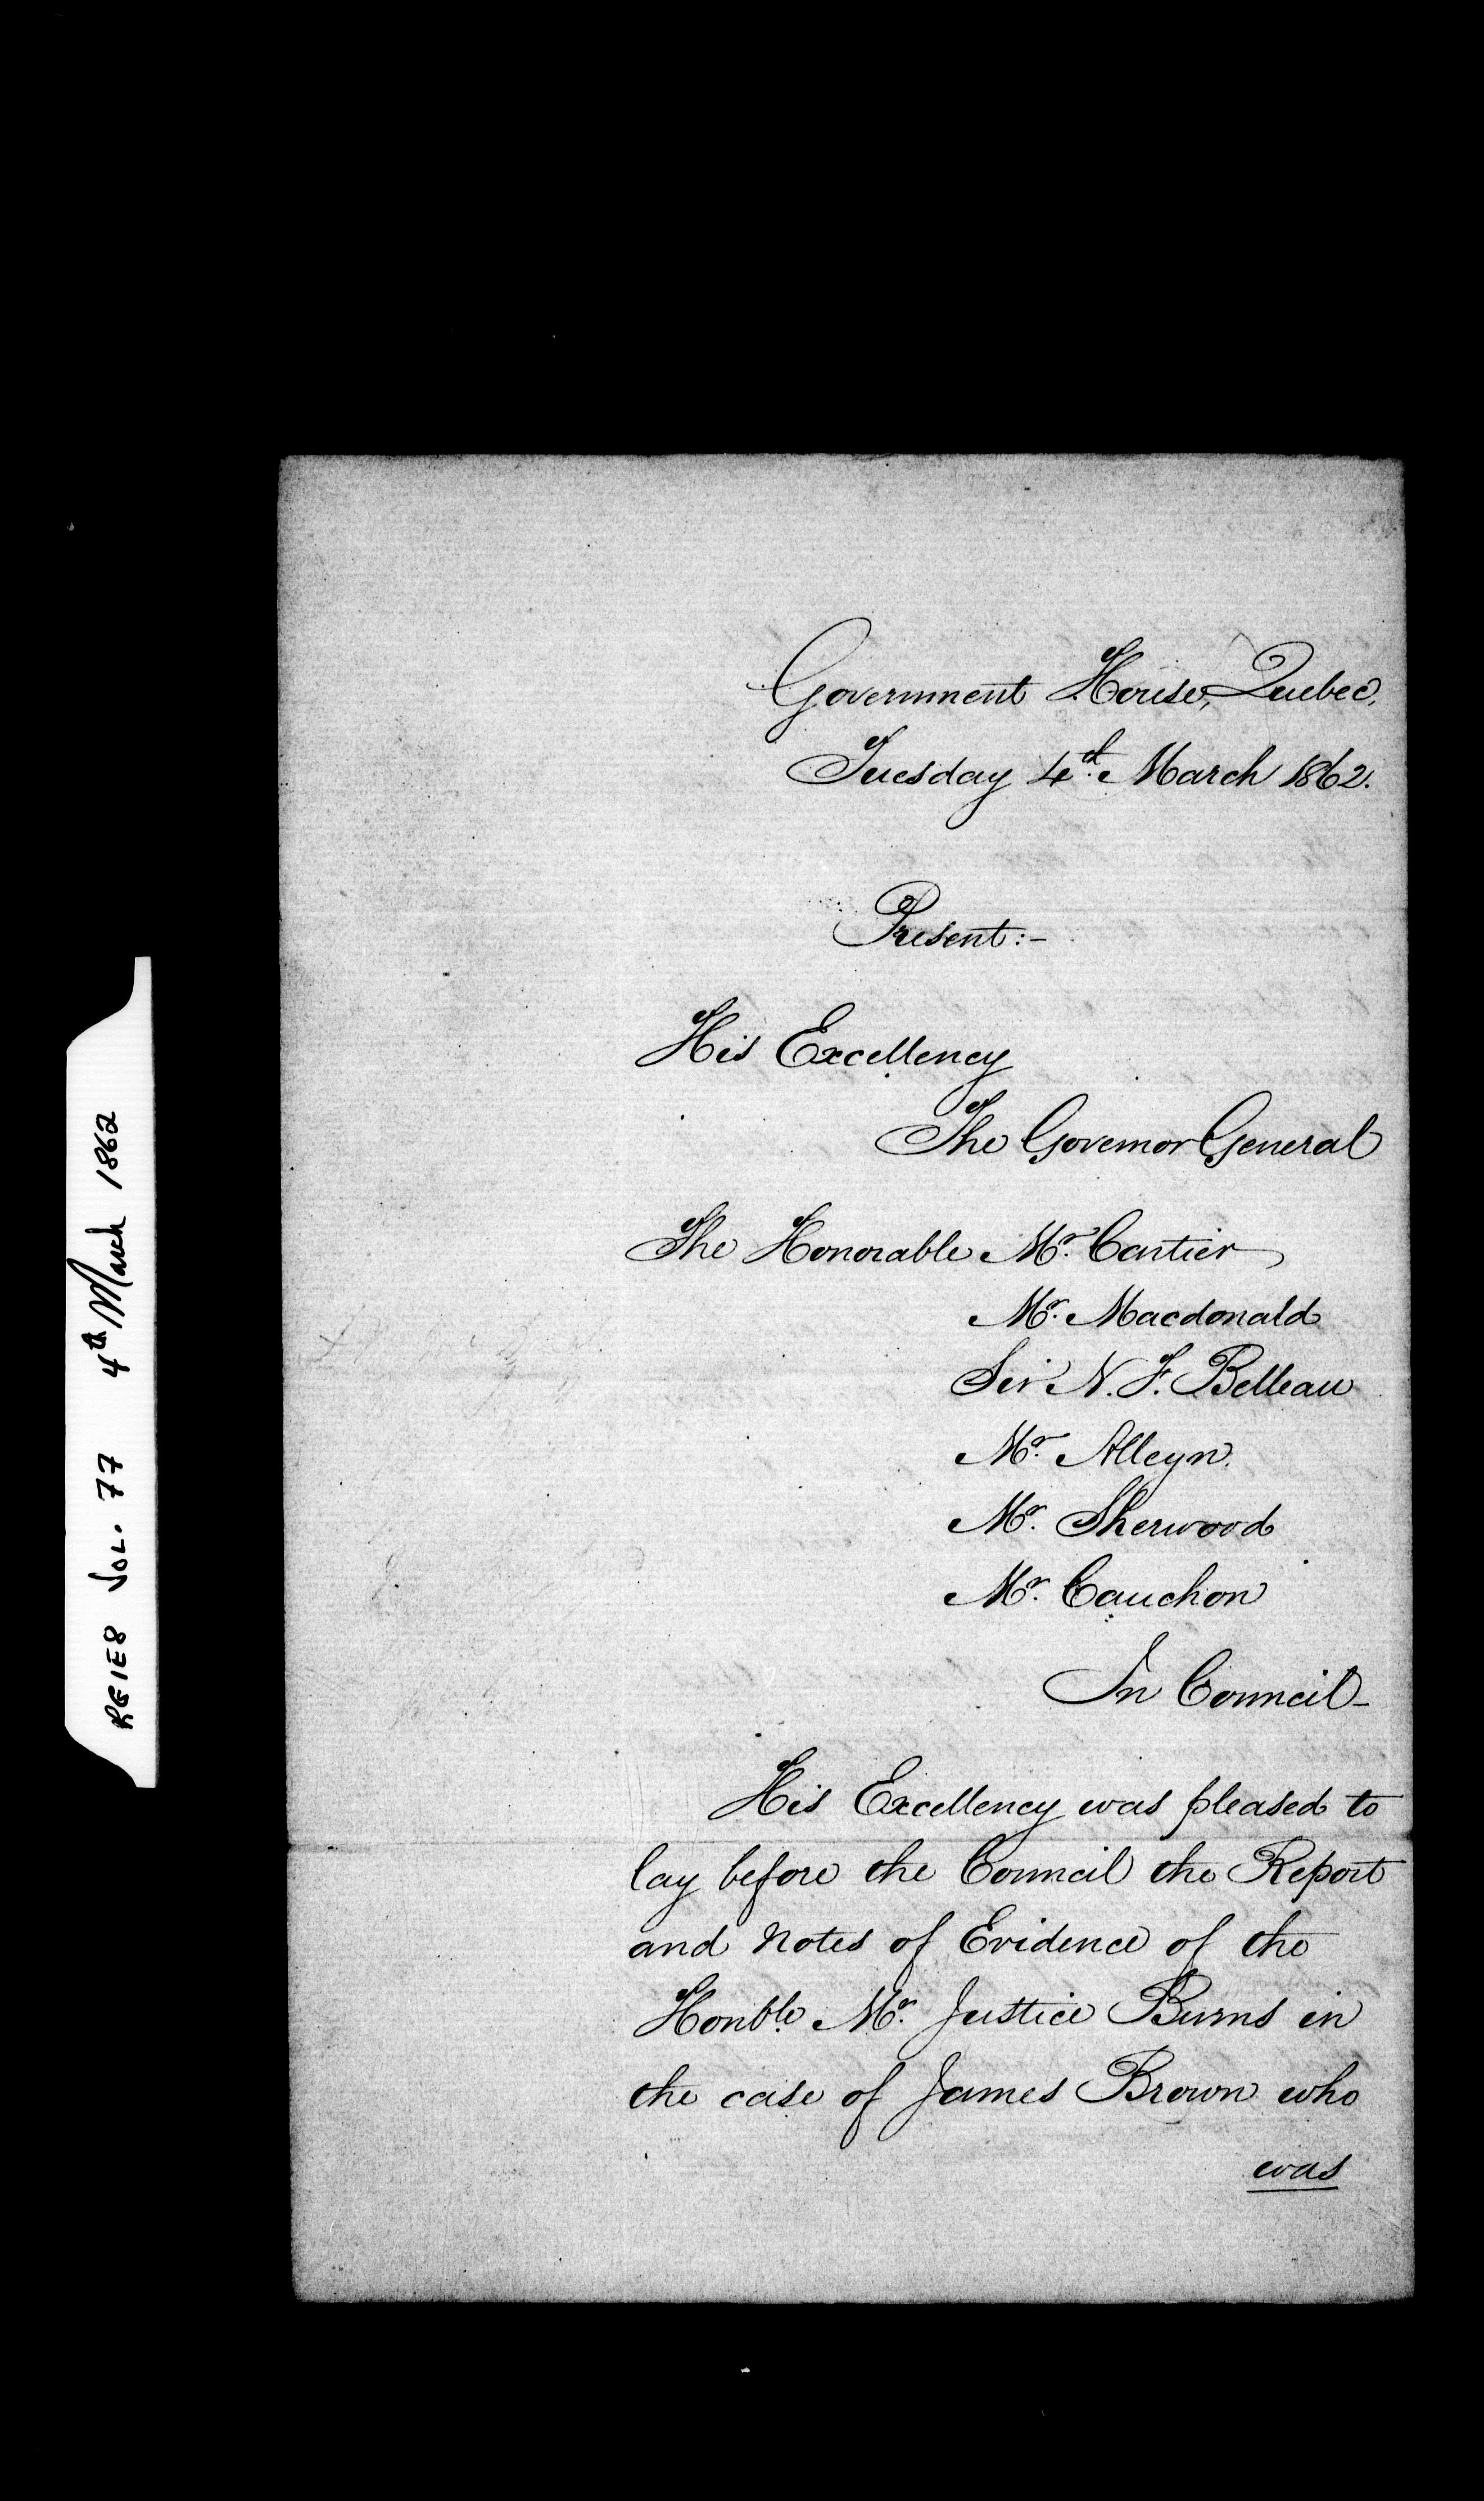 Government House, Quebec,
Tuesday 4th. March 1862.
Present:-
His Excellency
The Governor General
The Honorable Mr. Cartier
Mr. Macdonald
Sir N. F. Belleau
Mr. Alleyn.
Mr. Sherwood
Mr. Cauchon
In Council-
His Excellency was pleased to
lay before the Council the Report
and Notes of Evidence of the
Honble. Mr. Justice Burns in
the case of James Brown who
was
RG1E8 VOL. 77 4th March 1862